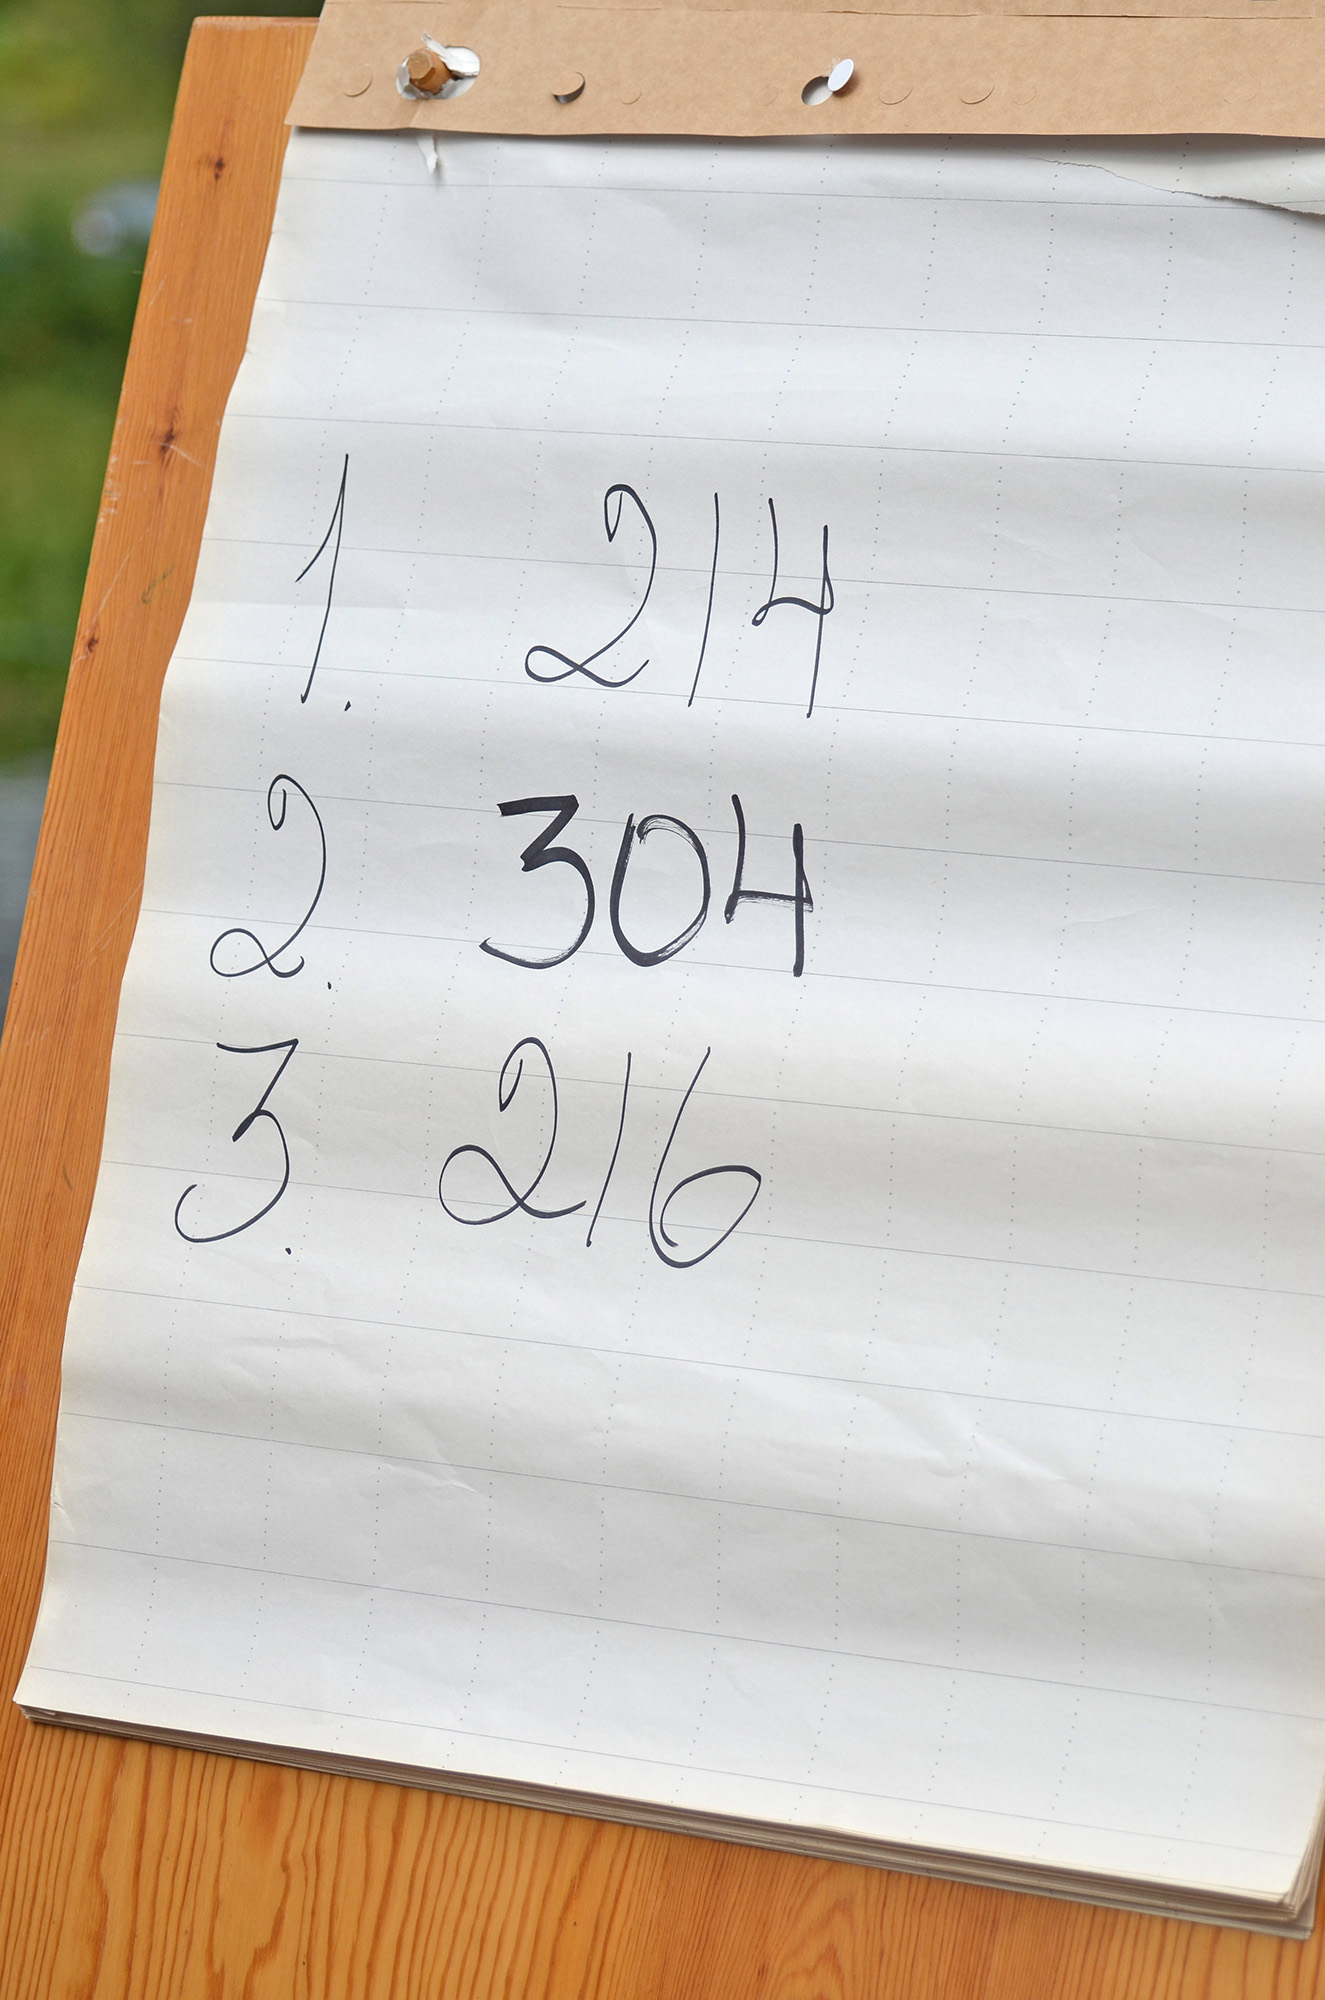 1. 214
2. 304
3. 216